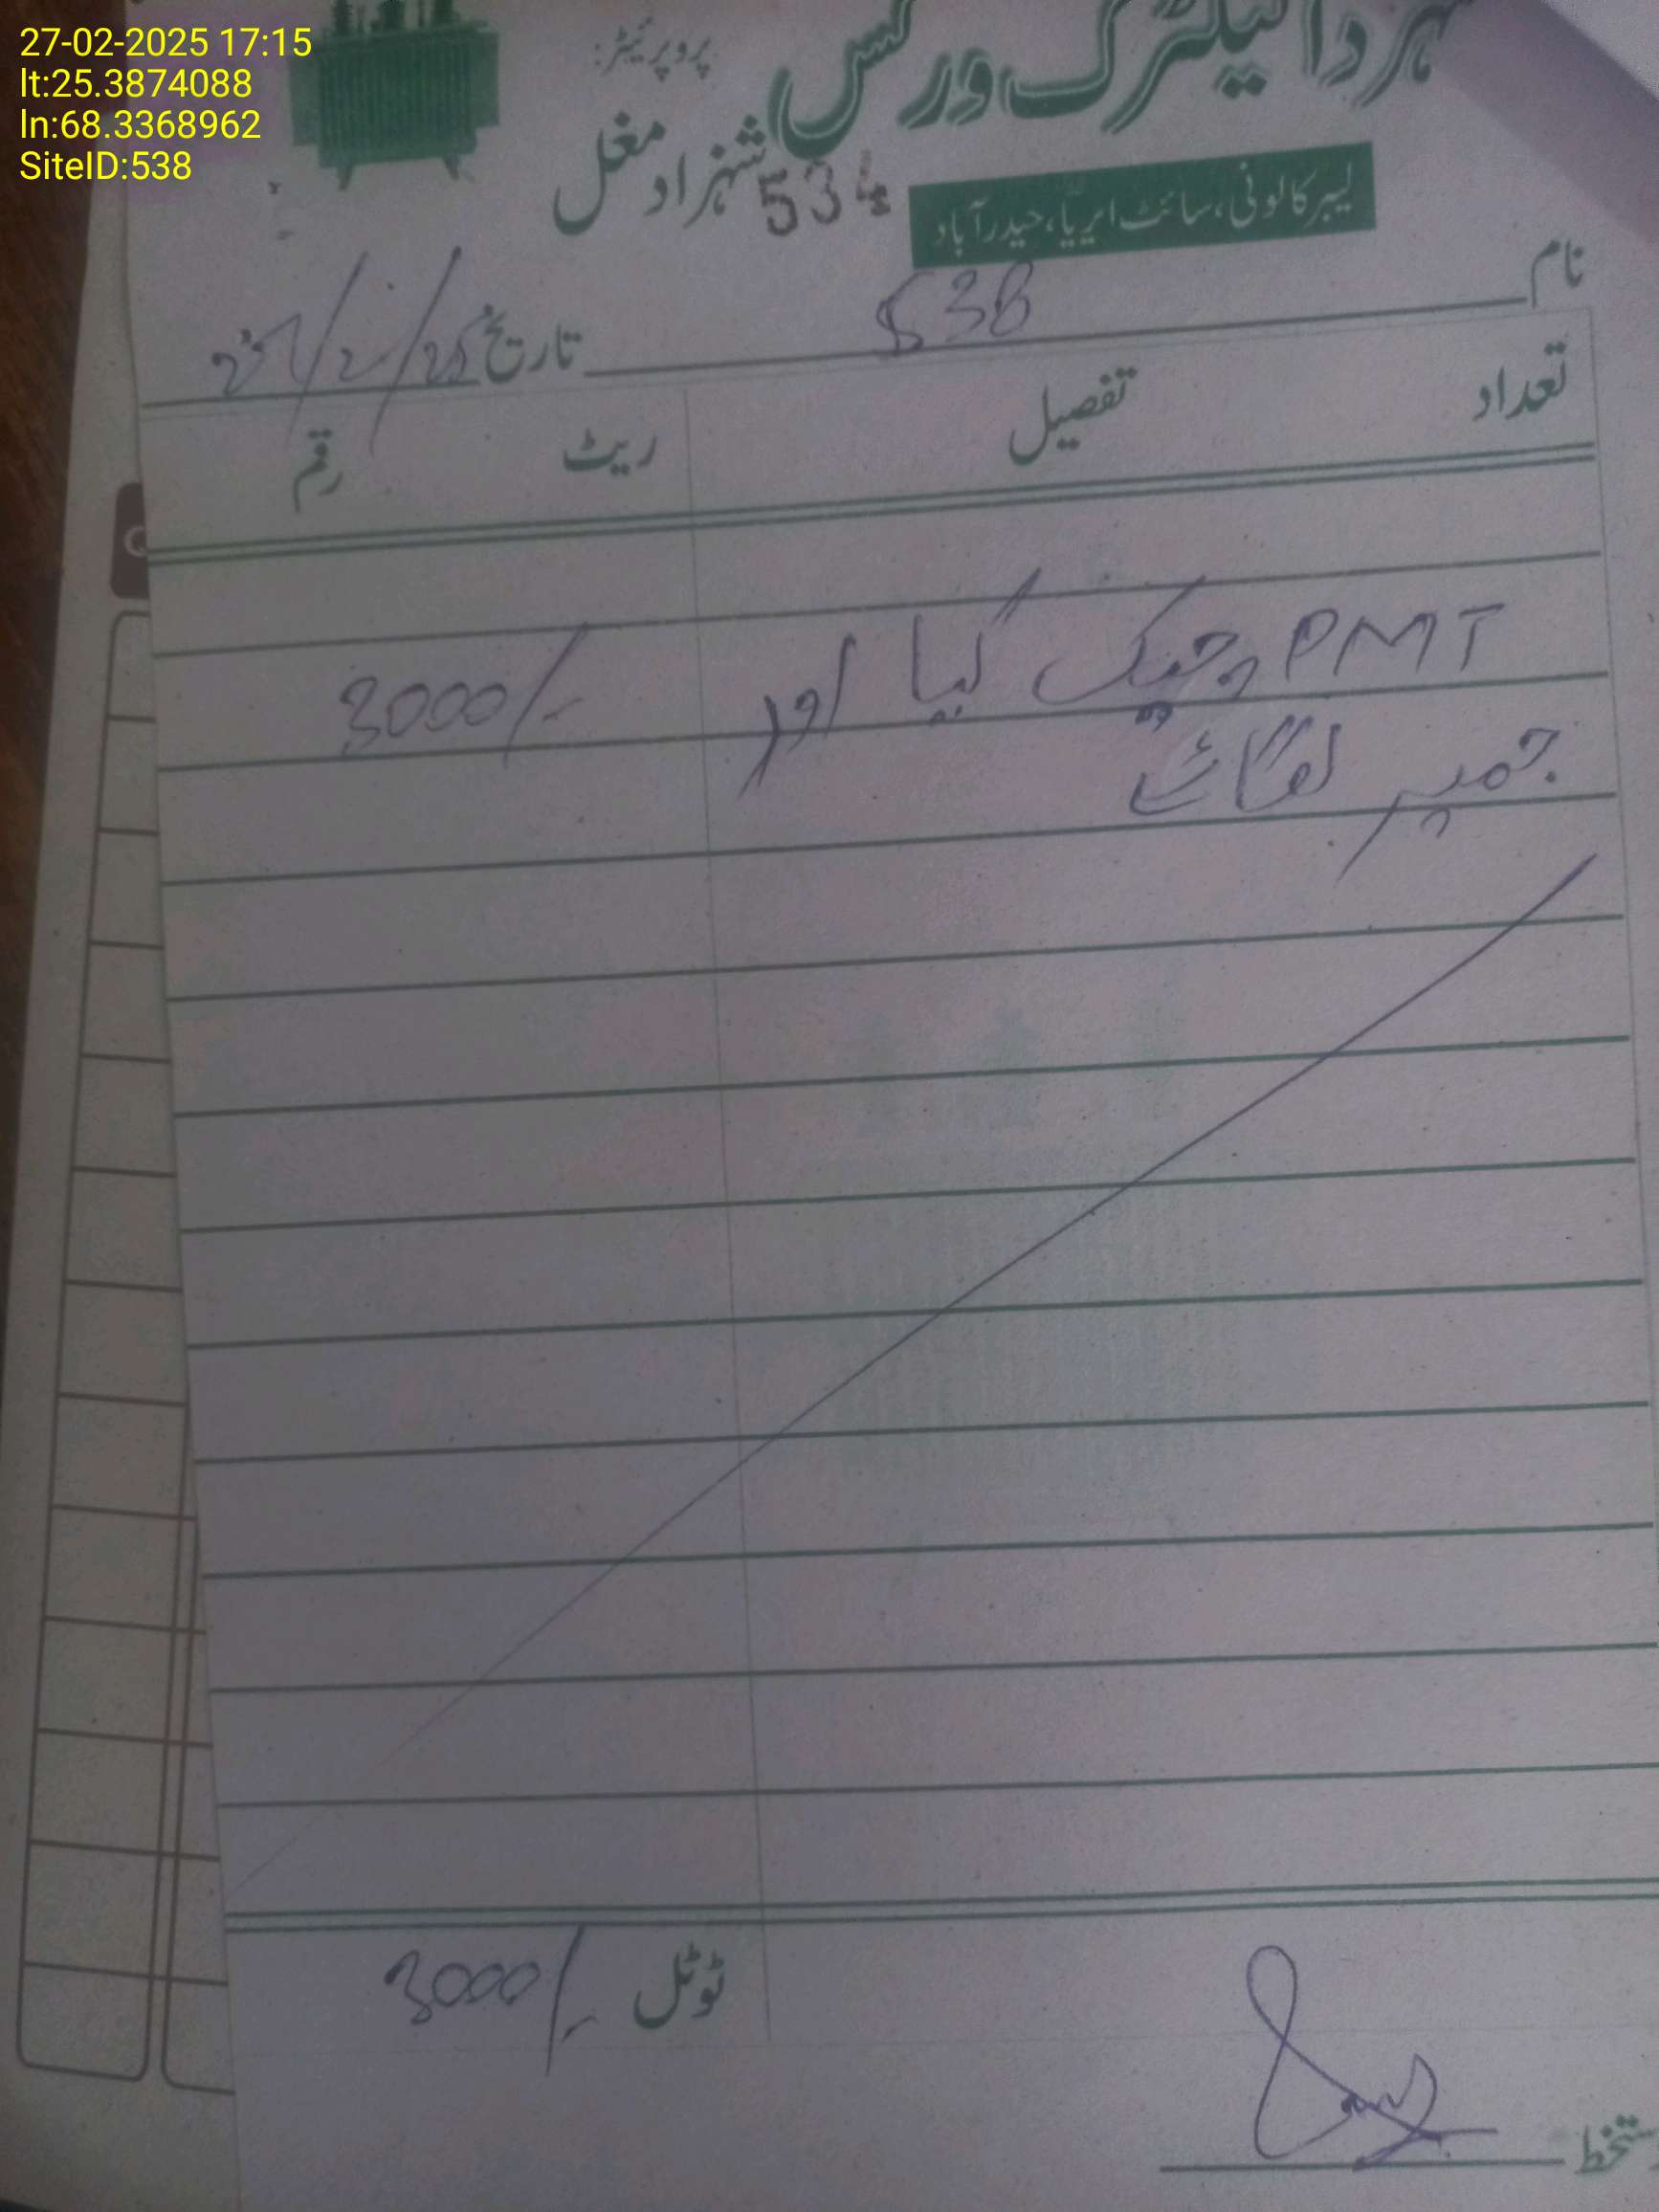 27-02-2025 17:15
lt:25.3874088
ln:68.3368962
SiteID:538
الیکٹرک ورکس
پروپرئیٹر:
شہزاد مغل
534
لیبر کالونی، سائٹ ایریا، حیدرآباد
نام 538
تاریخ /2/25
تعداد تفصیل ریٹ رقم
PMT چیک کیا اور 3000/-
جمپر لگائے
ٹوٹل 3000/-